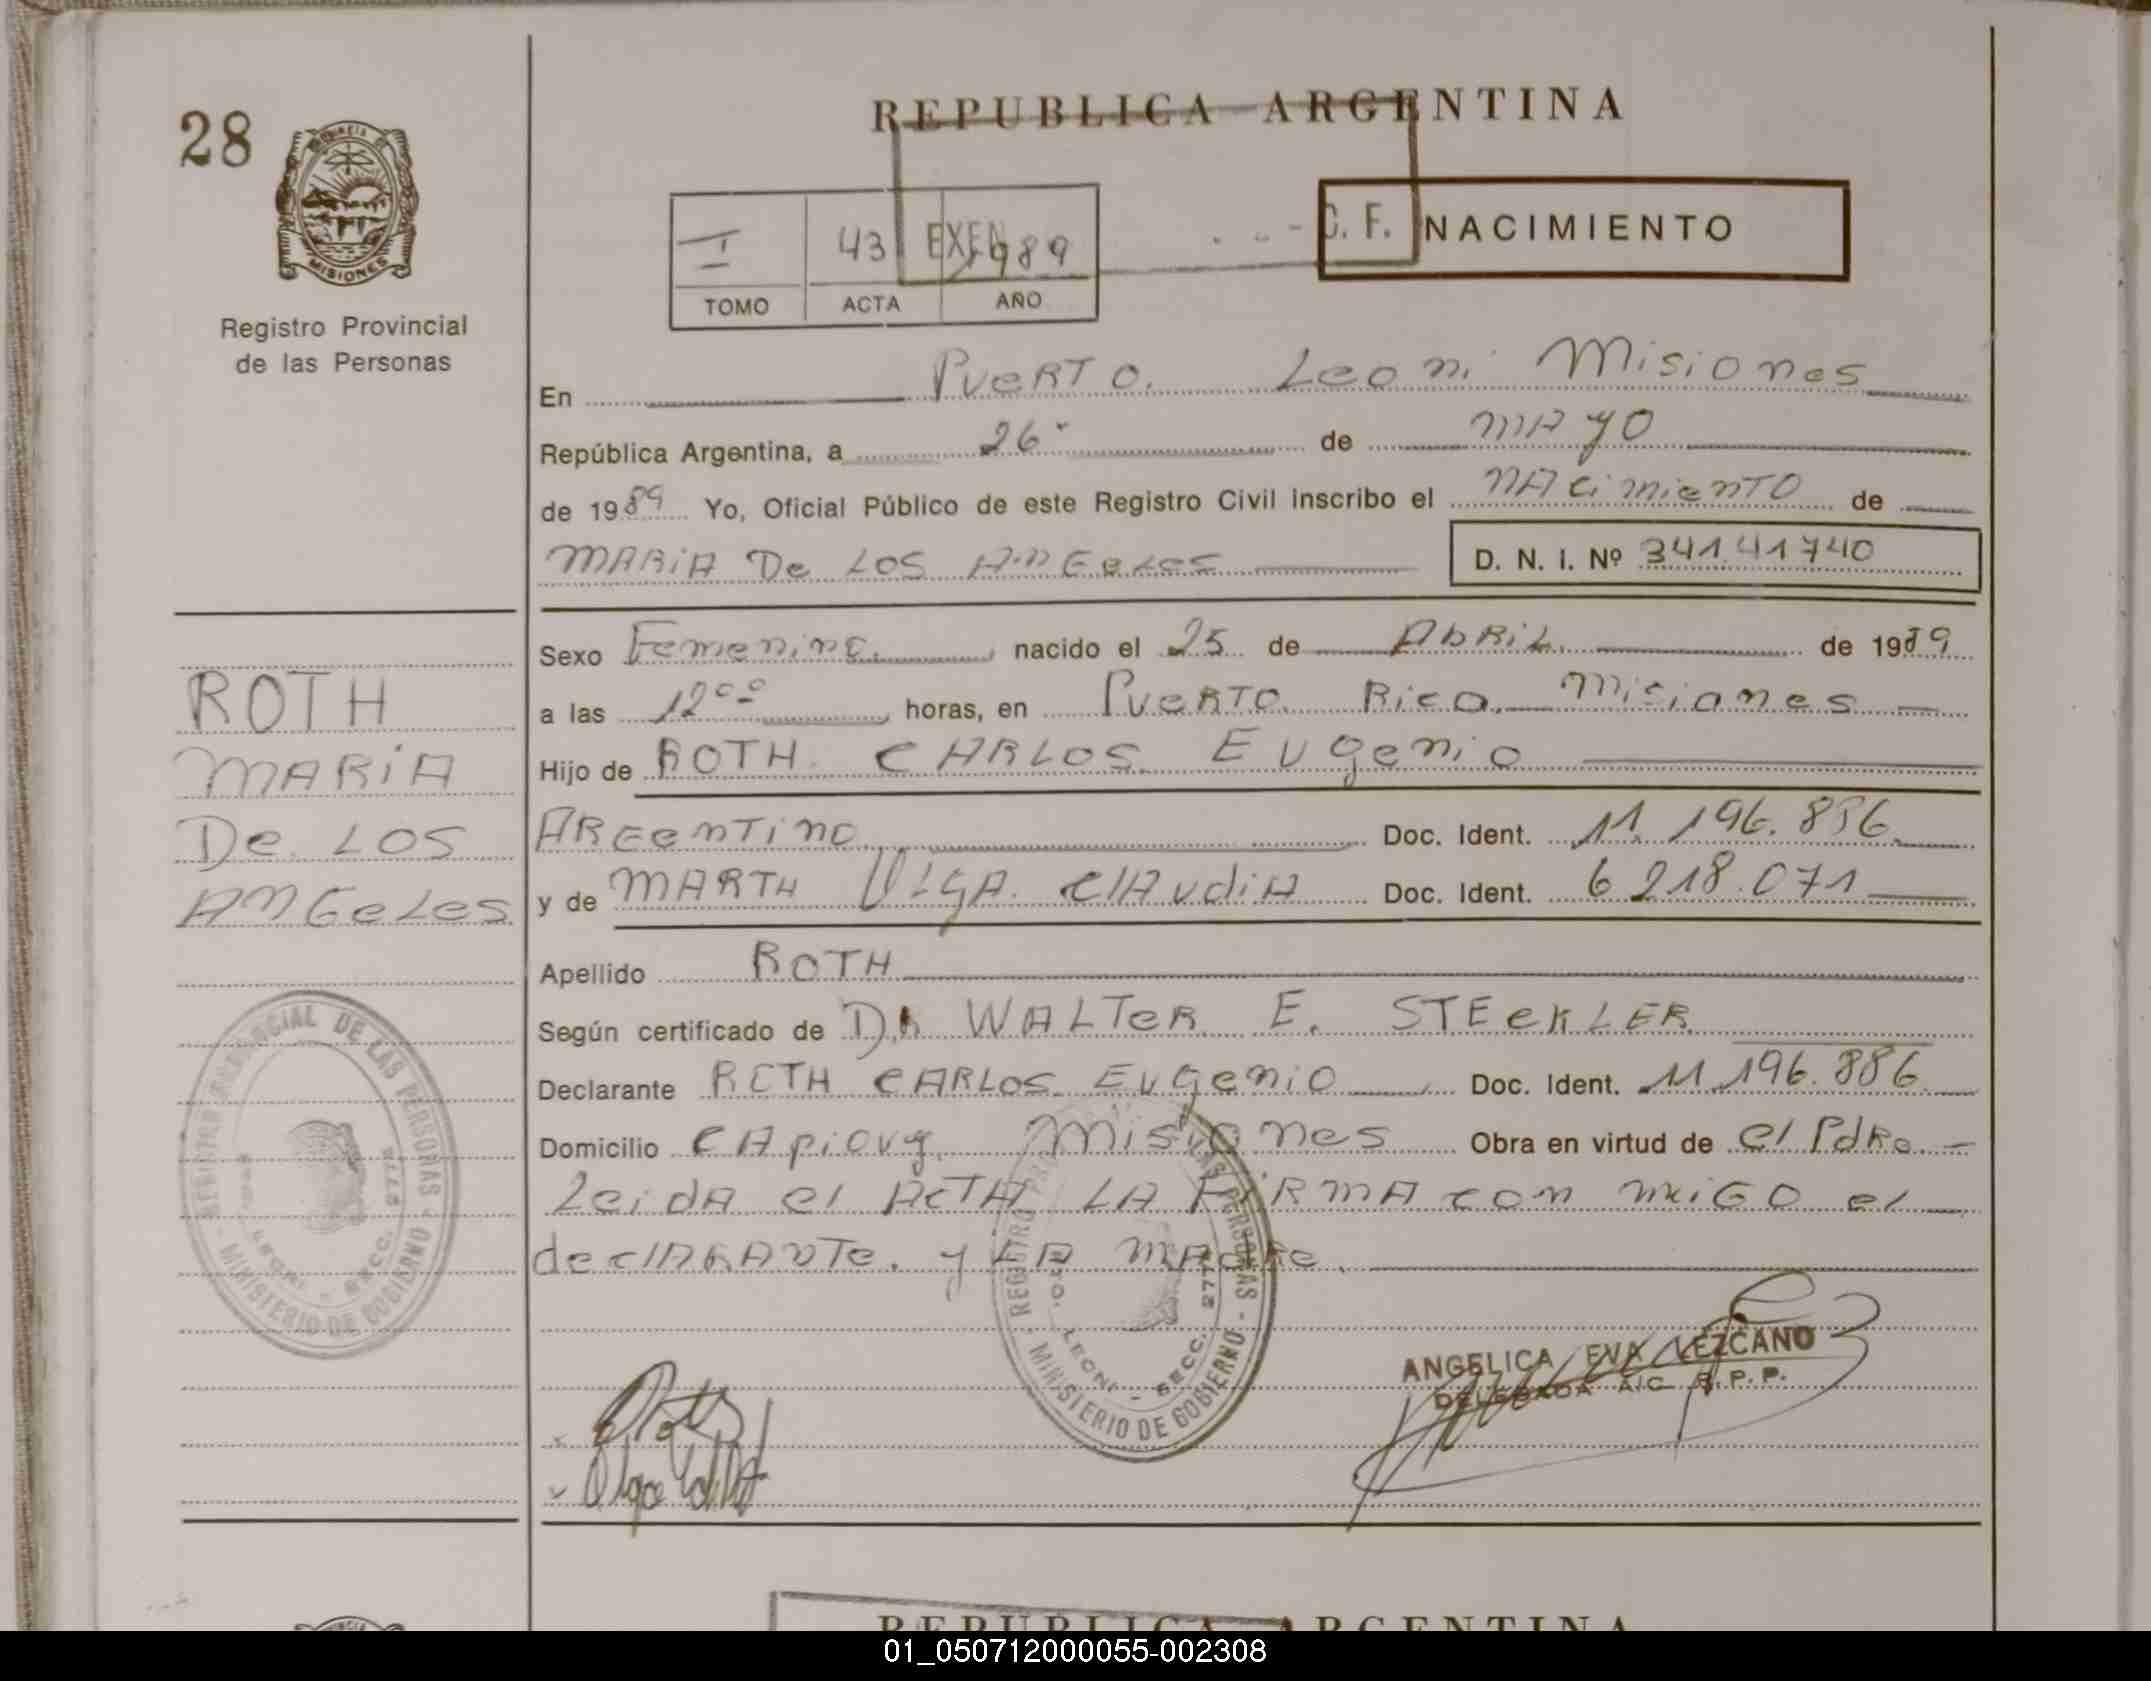 28
PROVINCIA DE
MISIONES
Registro Provincial
de las Personas
REPUBLICA ARGENTINA
I 43 1989
EXEN
C. F.
TOMO ACTA AÑO
NACIMIENTO
En Puerto Leoni Misiones
República Argentina, a 26 de MAYO
de 1989 Yo, Oficial Público de este Registro Civil inscribo el NACimienTO de
MARiA De LOS ANGeLes D. N. I. Nº 34141740
Sexo Femenino nacido el 25 de AbRiL de 1989
a las 12°° horas, en PueRTO Rico Misiones
Hijo de ROTH CARLOS EUgenio
ARGenTinO Doc. Ident. 11.196.886
y de MARTH OLGA ClAudiA Doc. Ident. 6 218.071
Apellido ROTH
Según certificado de DR WALTeR E. STEeKLER
Declarante ROTH CARLOS EUgeniO Doc. Ident. 11.196.886
Domicilio CApiovy Misiones Obra en virtud de el PdRe
LeidA el ACTA LA FiRMA con miGO el
declARANTe. y LA MAdRe.
ROTH
MARiA
De LOS
ANGeLes
REGISTRO PROVINCIAL DE LAS PERSONAS - MINISTERIO DE GOBIERNO
LEONI - SECC.
REGISTRO LAS PERSONAS - MINISTERIO DE GOBIERNO
LEONI - SECC. 277
ANGELICA EVA LEZCANO
DELEGADA A/C R.P.P.
REPUBLICA ARGENTINA
01_050712000055-002308